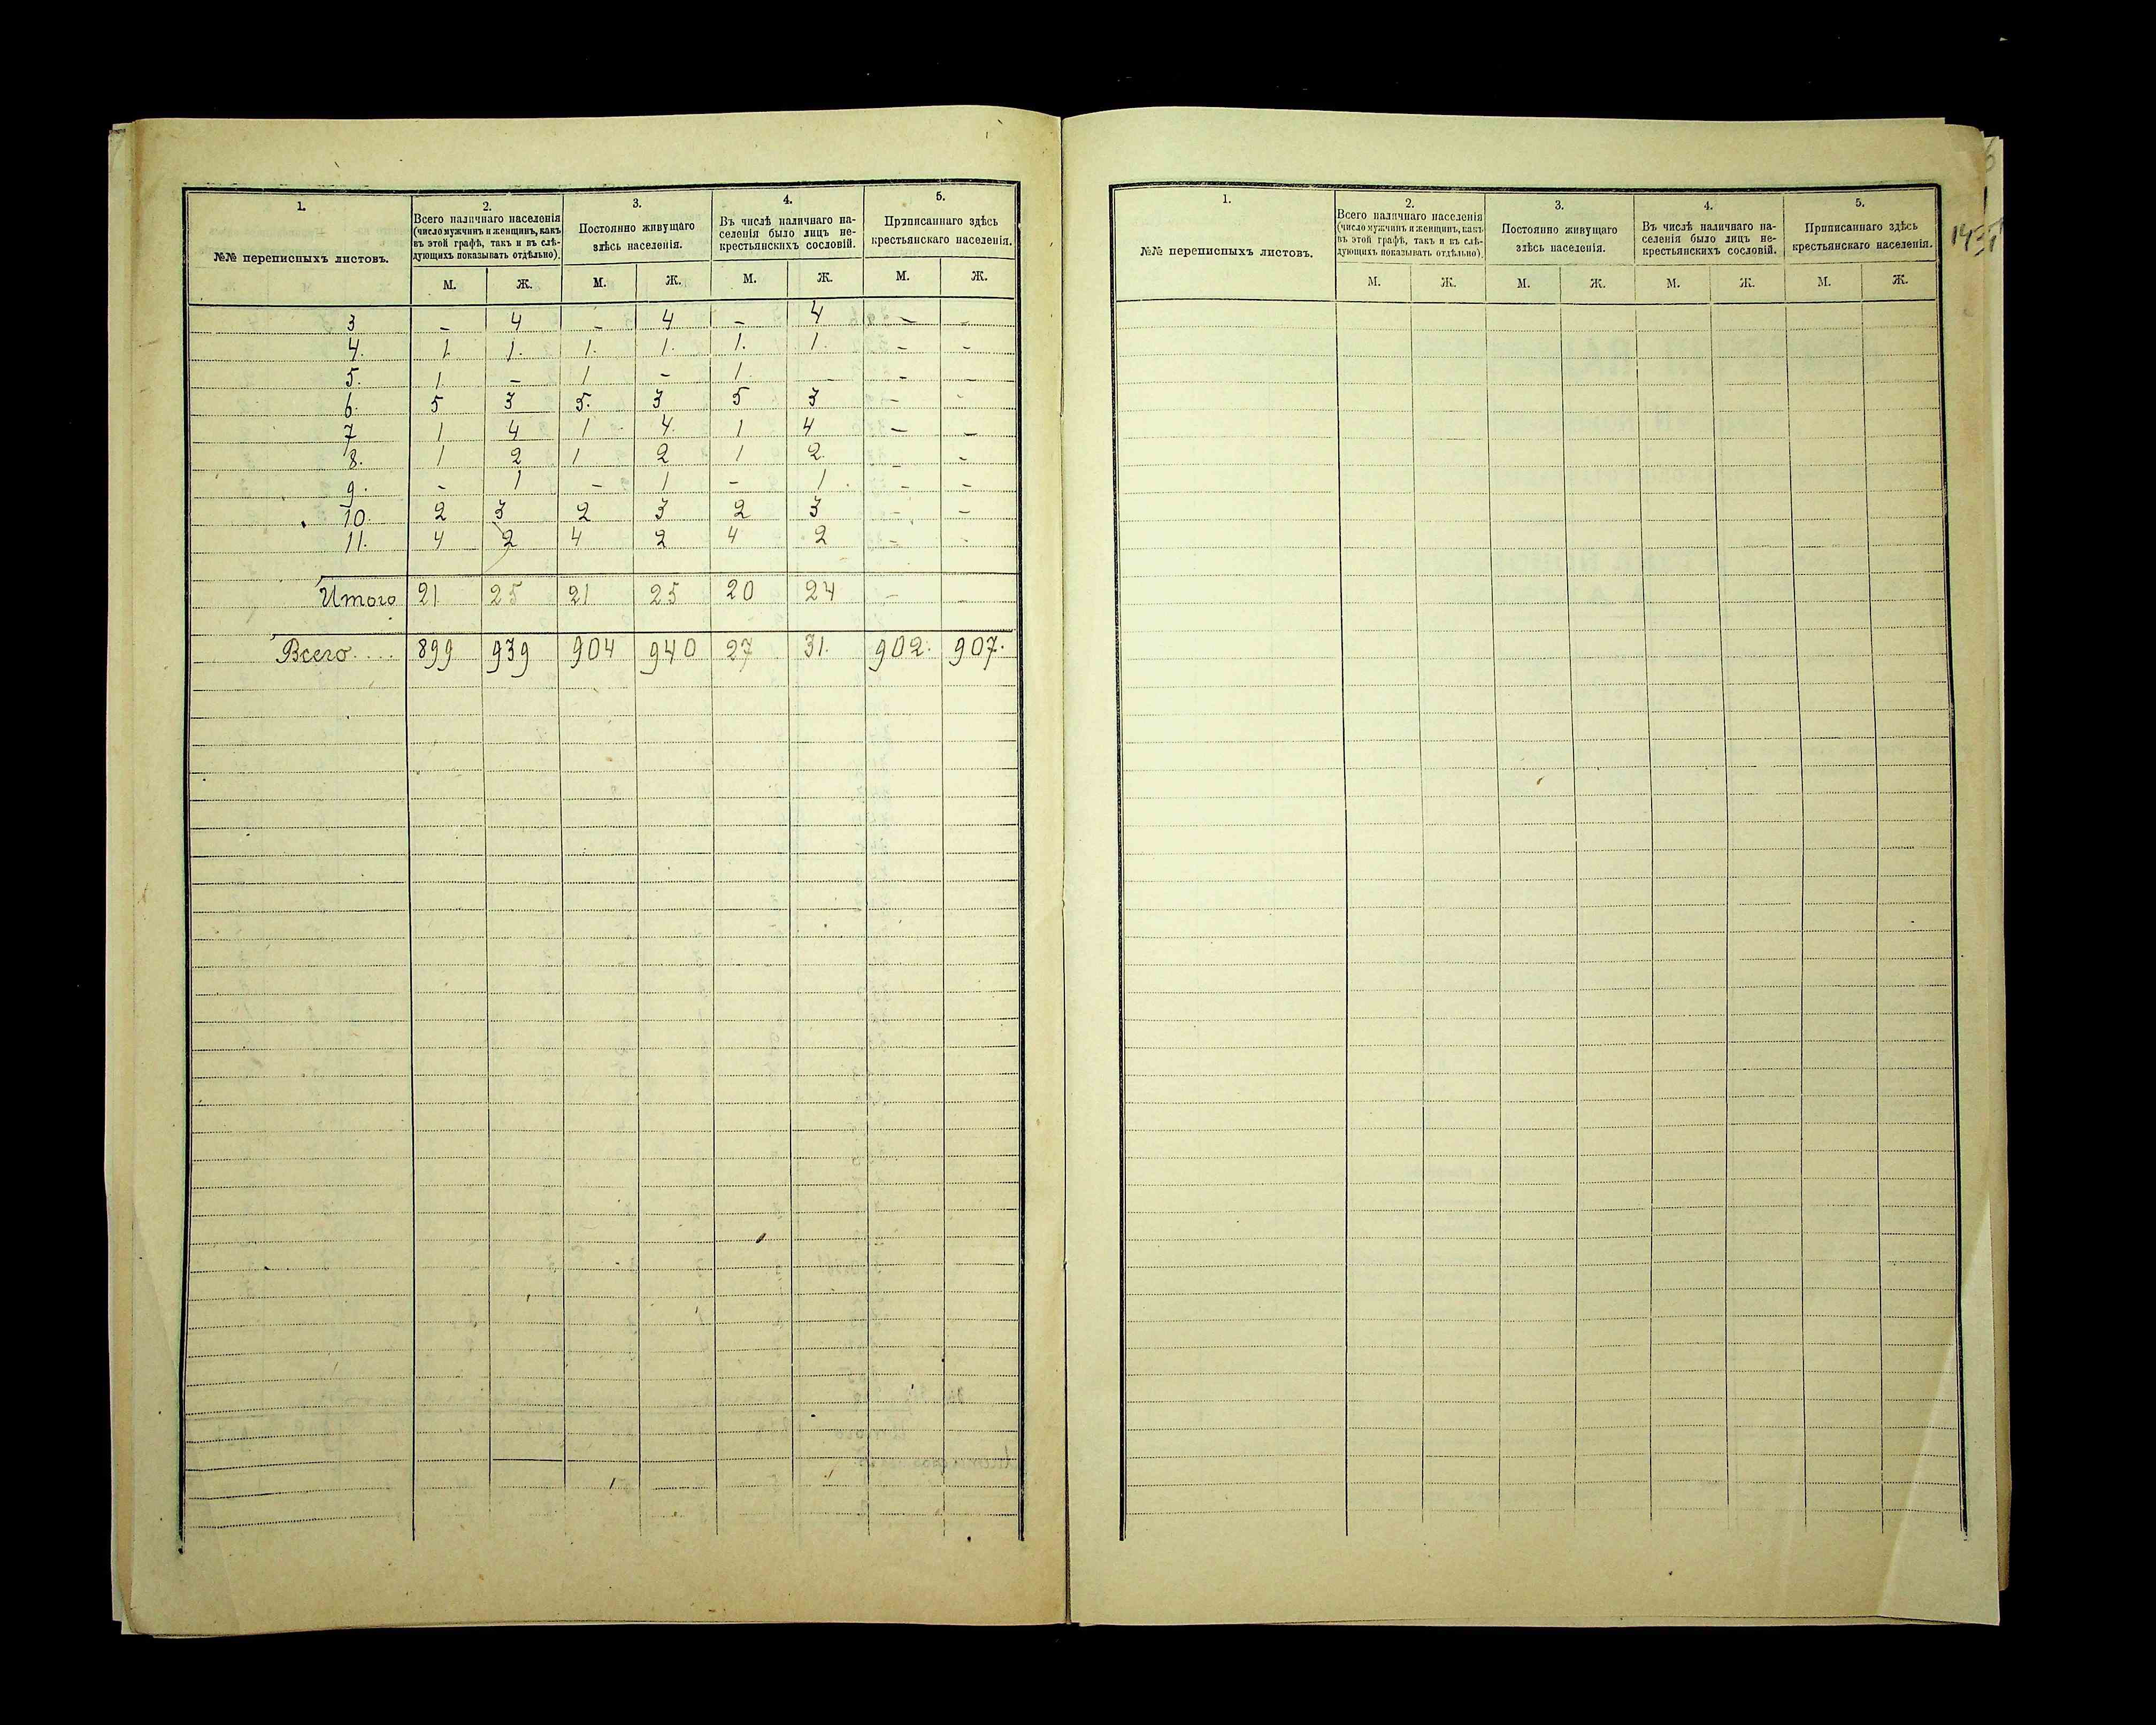 1. 2. 3. 4. 5.
№№ переписныхъ листовъ.
Всего наличнаго населенія
(число мужчинъ и женщинъ, какъ
въ этой графѣ, такъ и въ слѣ-
дующихъ показывать отдѣльно).
Постоянно живущаго
здѣсь населенія.
Въ числѣ наличнаго на-
селенія было лицъ не-
крестьянскихъ сословій.
Приписаннаго здѣсь
крестьянскаго населенія.
М. Ж. М. Ж. М. Ж. М. Ж.
3 – 4 – 4 – 4 – –
4. 1. 1. 1. 1. 1. 1. – –
5. 1. – 1 – 1. – – –
6. 5 3 5. 3 5 3 – –
7 1 4 1 4. 1 4 – –
8. 1 2 1 2 1 2. – –
9. – 1 – 1 – 1. – –
10. 2 3 2 3 2 3 – –
11. 4 2 4 2 4 2 – –
Итого 21 25 21 25 20 24 – –
Всего.... 899 939 904 940 27 31. 902. 907.
1. 2. 3. 4. 5.
№№ переписныхъ листовъ.
Всего наличнаго населенія
(число мужчинъ и женщинъ, какъ
въ этой графѣ, такъ и въ слѣ-
дующихъ показывать отдѣльно).
Постоянно живущаго
здѣсь населенія.
Въ числѣ наличнаго на-
селенія было лицъ не-
крестьянскихъ сословій.
Приписаннаго здѣсь
крестьянскаго населенія.
М. Ж. М. Ж. М. Ж. М. Ж.